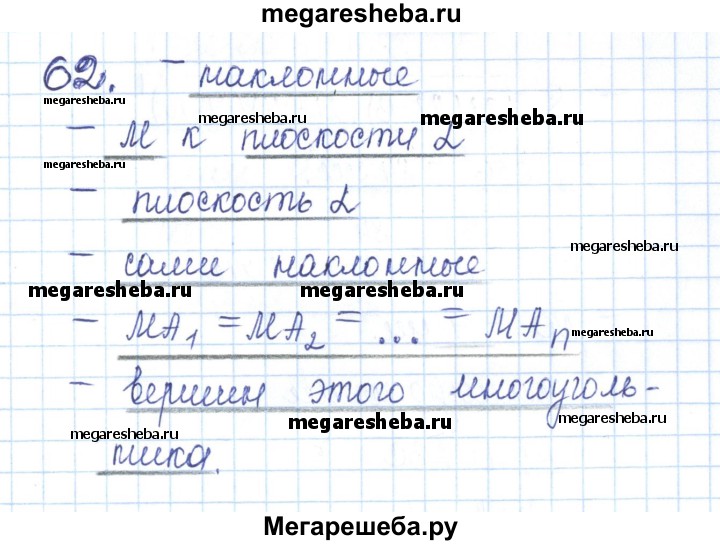 megaresheba.ru
62. - наклонные
megaresheba.ru megaresheba.ru megaresheba.ru
- М к плоскости α
megaresheba.ru
- плоскость α
megaresheba.ru
- сами наклонные
megaresheba.ru megaresheba.ru
- МА₁ = МА₂ = ... = МАₙ
megaresheba.ru
- вершин этого многоуголь-
megaresheba.ru megaresheba.ru megaresheba.ru
ника.
Мегарешеба.ру